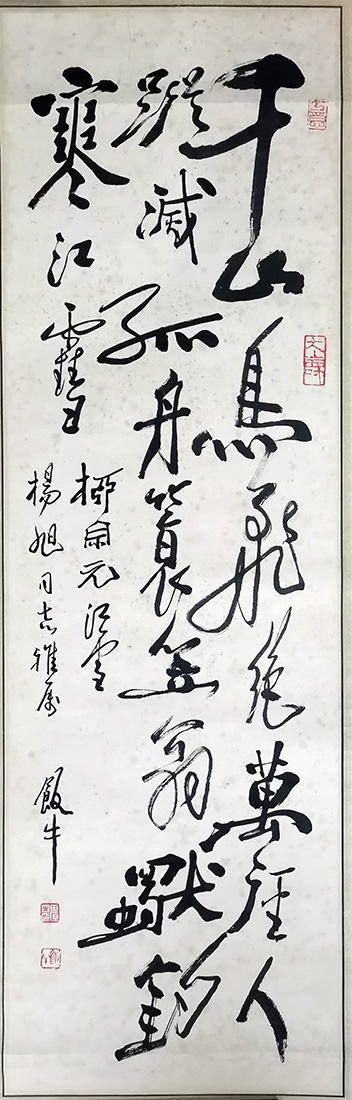 千山鳥飛絕萬徑人
蹤滅孤舟簑笠翁獨釣
寒江雪
柳宗元江雪
楊旭同志雅属
飯牛